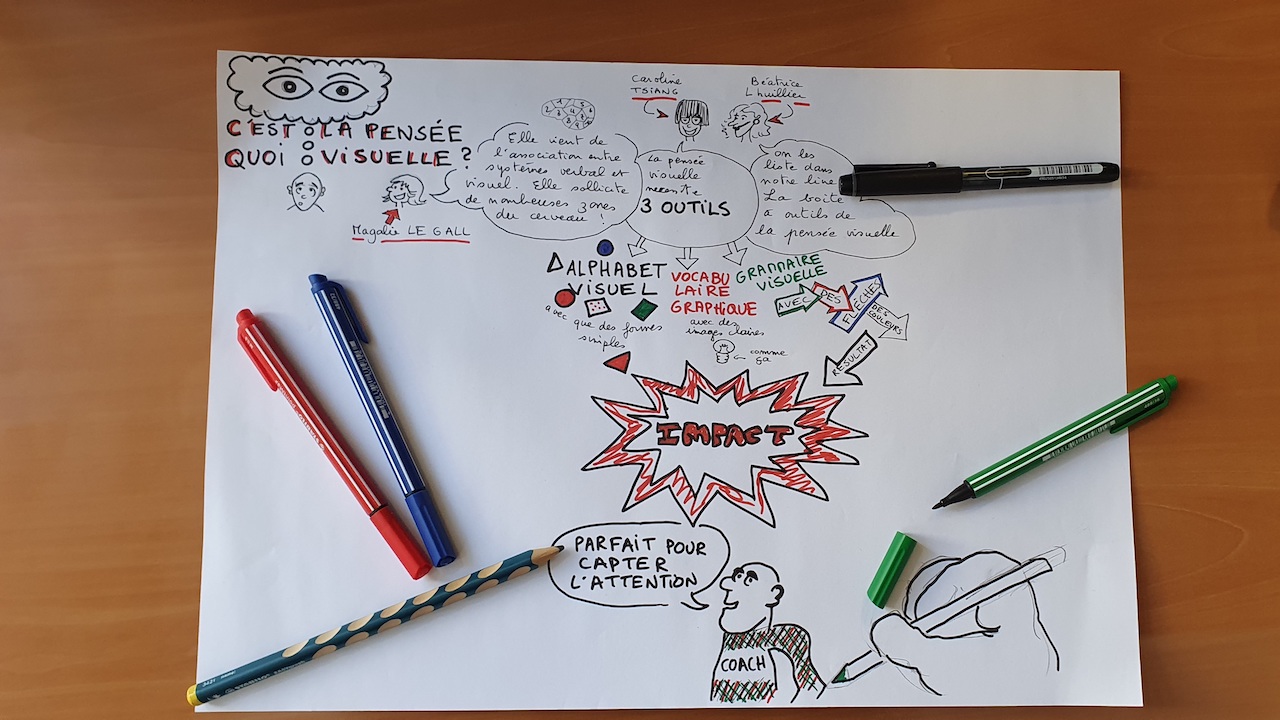 C'EST LA PENSÉE
QUOI VISUELLE ?
Magalie LE GALL
Elle vient de
l'association entre
systèmes verbal et
visuel. Elle sollicite
de nombreuses zones
du cerveau !
Caroline
TSIANG
La pensée
visuelle
nécessite
3 OUTILS
Béatrice
Lhuillier
on les
liste dans
notre livre
La boîte
à outils de
la pensée visuelle
ALPHABET
VISUEL
avec que des formes
simples
VOCABU
LAIRE
GRAPHIQUE
avec des
images claires
comme
ça
GRAMMAIRE
VISUELLE
AVEC
DES
FLÈCHES
DES
COULEURS
RÉSULTAT
IMPACT
PARFAIT POUR
CAPTER
L'ATTENTION
COACH